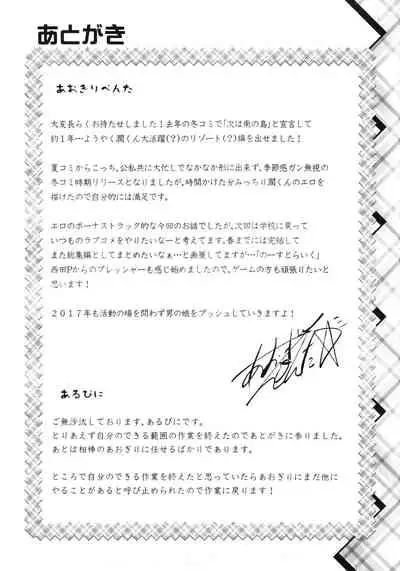 あとがき
あおきりぺんた
大変長らくお待たせしました！去年の冬コミで「次は南の島」と宣言して
約１年…ようやく潤くん大活躍（？）のリゾート（？）編を出せました！
夏コミからこっち、公私共に大忙しでなかなか形に出来ず、季節感ガン無視の
冬コミ時期リリースとなりましたが、時間かけた分みっちり潤くんのエロを
描けたので自分的には満足です。
エロのボーナストラック的な今回のお話でしたが、次回は学校に戻って
いつものラブコメをやりたいなーと考えてます。春までには完結して
また総集編としてまとめたいなぁ…と画策してますが…「のーすとらいく」
西田Pからのプレッシャーも感じ始めましたので、ゲームの方も頑張りたいと
思います！
２０１７年も活動の場を問わず男の娘をプッシュしていきますよ！
あるぴに
ご無沙汰しております、あるぴにです。
とりあえず自分のできる範囲の作業を終えたのであとがきに参りました。
あとは相棒のあおぎりに任せるばかりであります。
ところで自分のできる作業を終えたと思っていたらあおぎりにまだ他に
やることがあると呼び止められたので作業に戻ります！